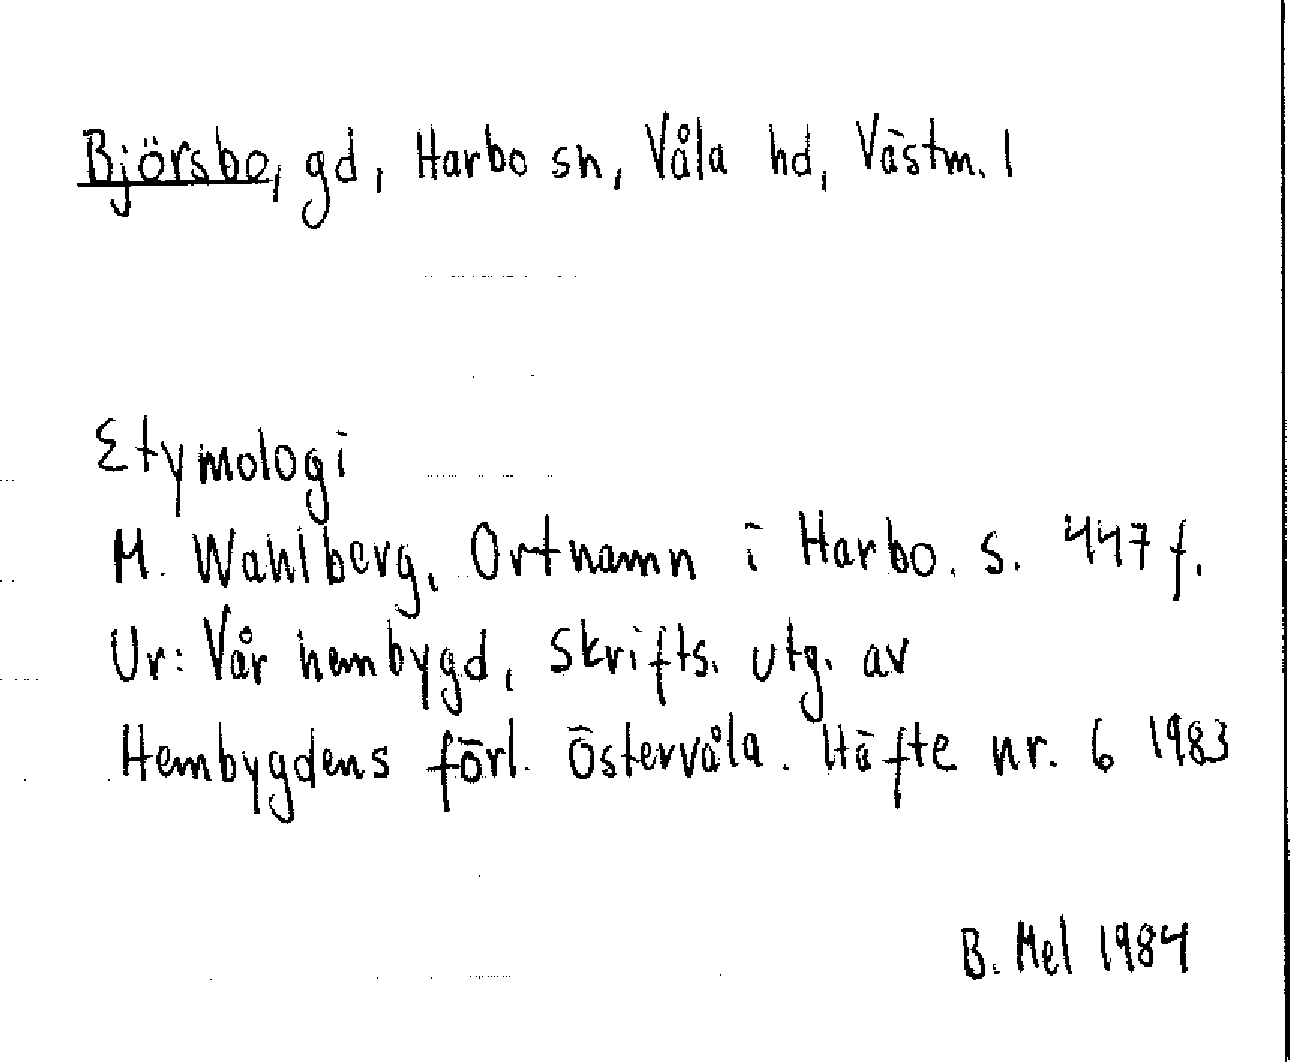 Björsbo, gd, Harbo sn, Våla hd, Västm. l
Etymologi
M. Wahlberg, Ortnamn i Harbo. s. 447 f.
Ur: Vår hembygd, skrifts. utg. av
Hembygdens förl. Östervåla. Häfte nr. 6 1983
B. Mel 1984